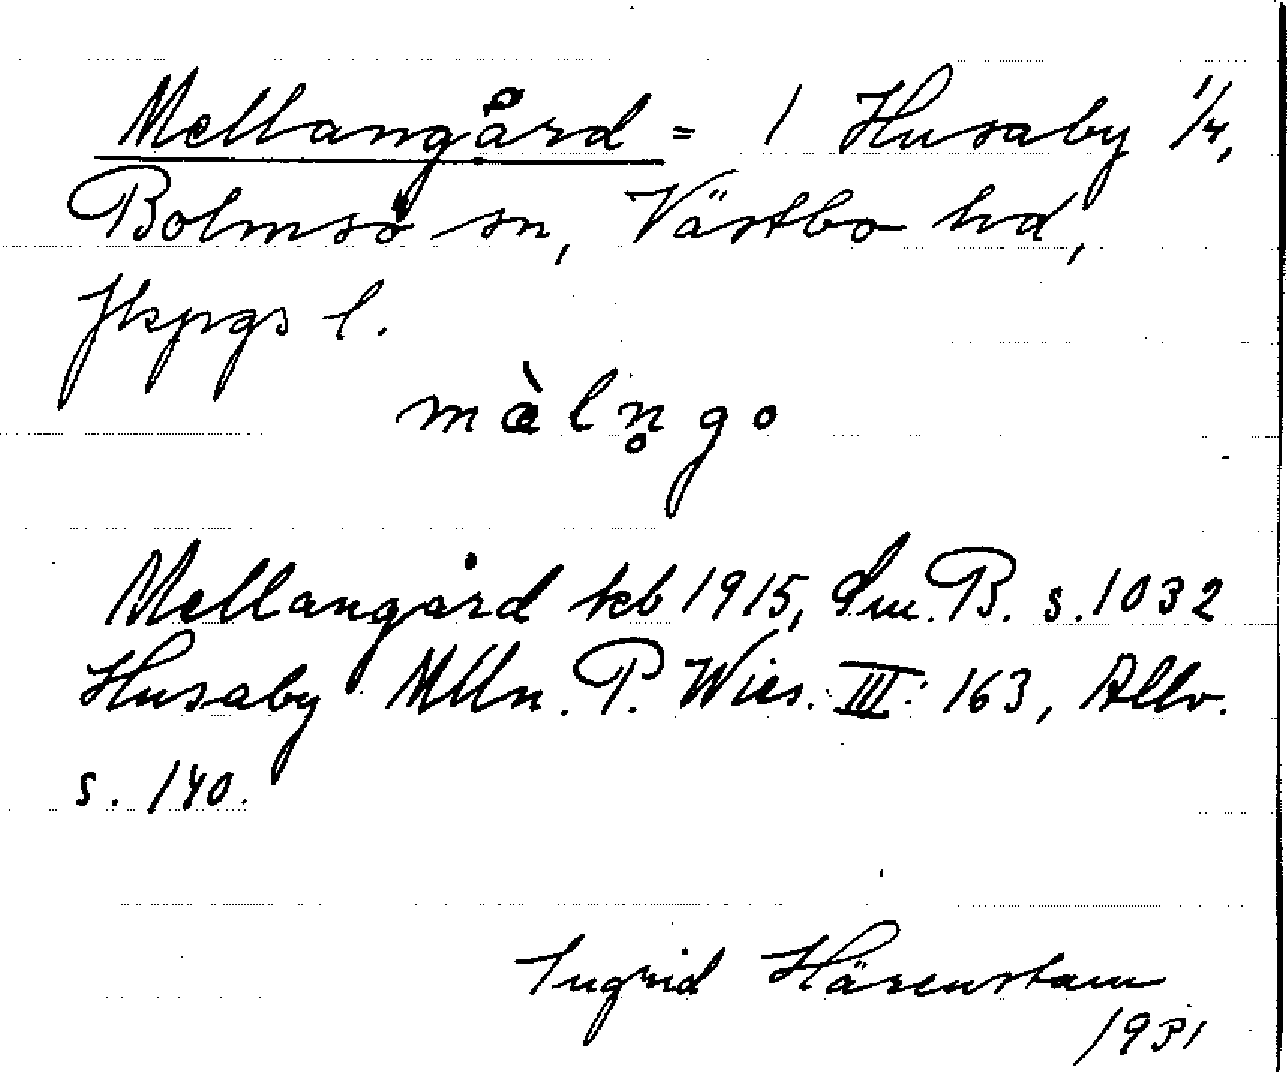 Mellangård = 1 Husaby 1/4,
Bolmsö sn, Västbo hd,
Jkpgs l.
mæ̀ln̥go
Mellangård kb 1915, Sm. B. s. 1032
Husaby Mlln. P. Wies. III: 163, Allv.
s. 140.
Ingrid Härenstam
1931